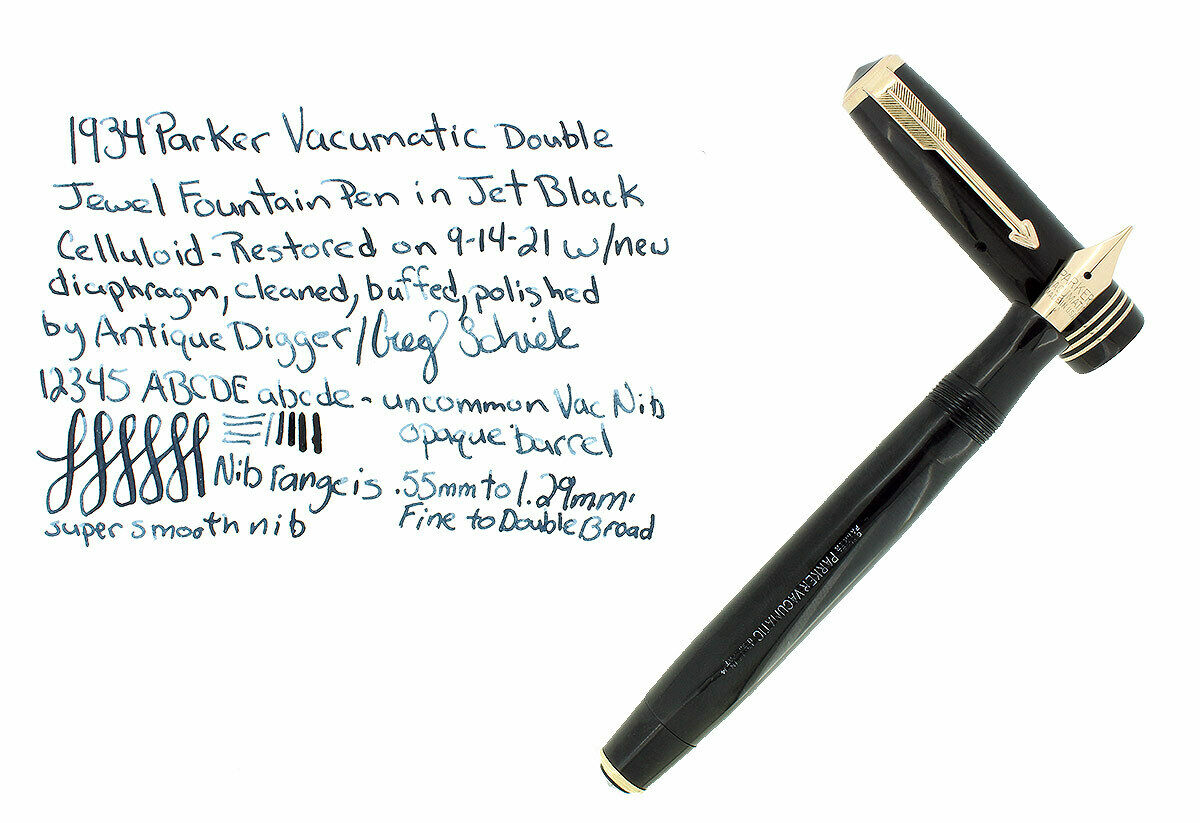 1934 Parker Vacumatic Double
Jewel Fountain Pen in Jet Black
Celluloid - Restored on 9-14-21 w/new
diaphragm, cleaned, buffed, polished
by Antique Digger/Greg Schiek
12345 ABCDE abcde - uncommon Vac Nib
opaque barrel
Nib range is .55mm to 1.29mm.
super smooth nib
Fine to Double Broad
PARKER
VACUMATIC
PARKER VACUMATIC